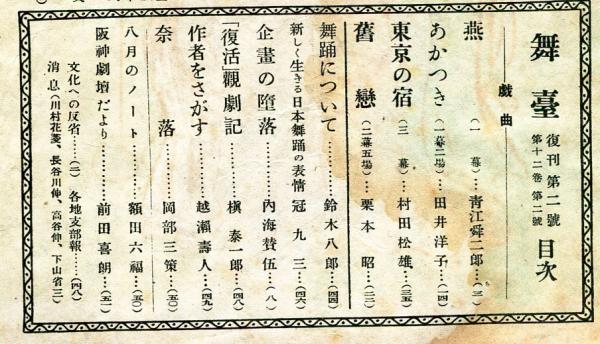 舞臺 復刊第二號 第十二卷第二號 目次
戯曲
燕 (一幕)…靑江舜二郎…(二)
あかつき (一幕二場)…田井洋子…(一四)
東京の宿 (三幕)…村田松雄…(三五)
舊戀 (二幕五場)…栗本昭…(二二)
舞踊について……鈴木八郎…(四四)
新しく生きる日本舞踊の表情 冠九三…(四六)
企畫の墮落……內海賛伍…(八)
「復活」觀劇記……槇泰一郎…(四八)
作者をさがす……越瀨壽人…(四九)
奈落……岡部三策…(五〇)
八月のノート……額田六福…(五〇)
阪神劇壇だより……前田喜朗…(五一)
文化への反省……(二) 各地支部報……(四八)
消息(川村花菱、長谷川伸、高谷伸、下山省三)